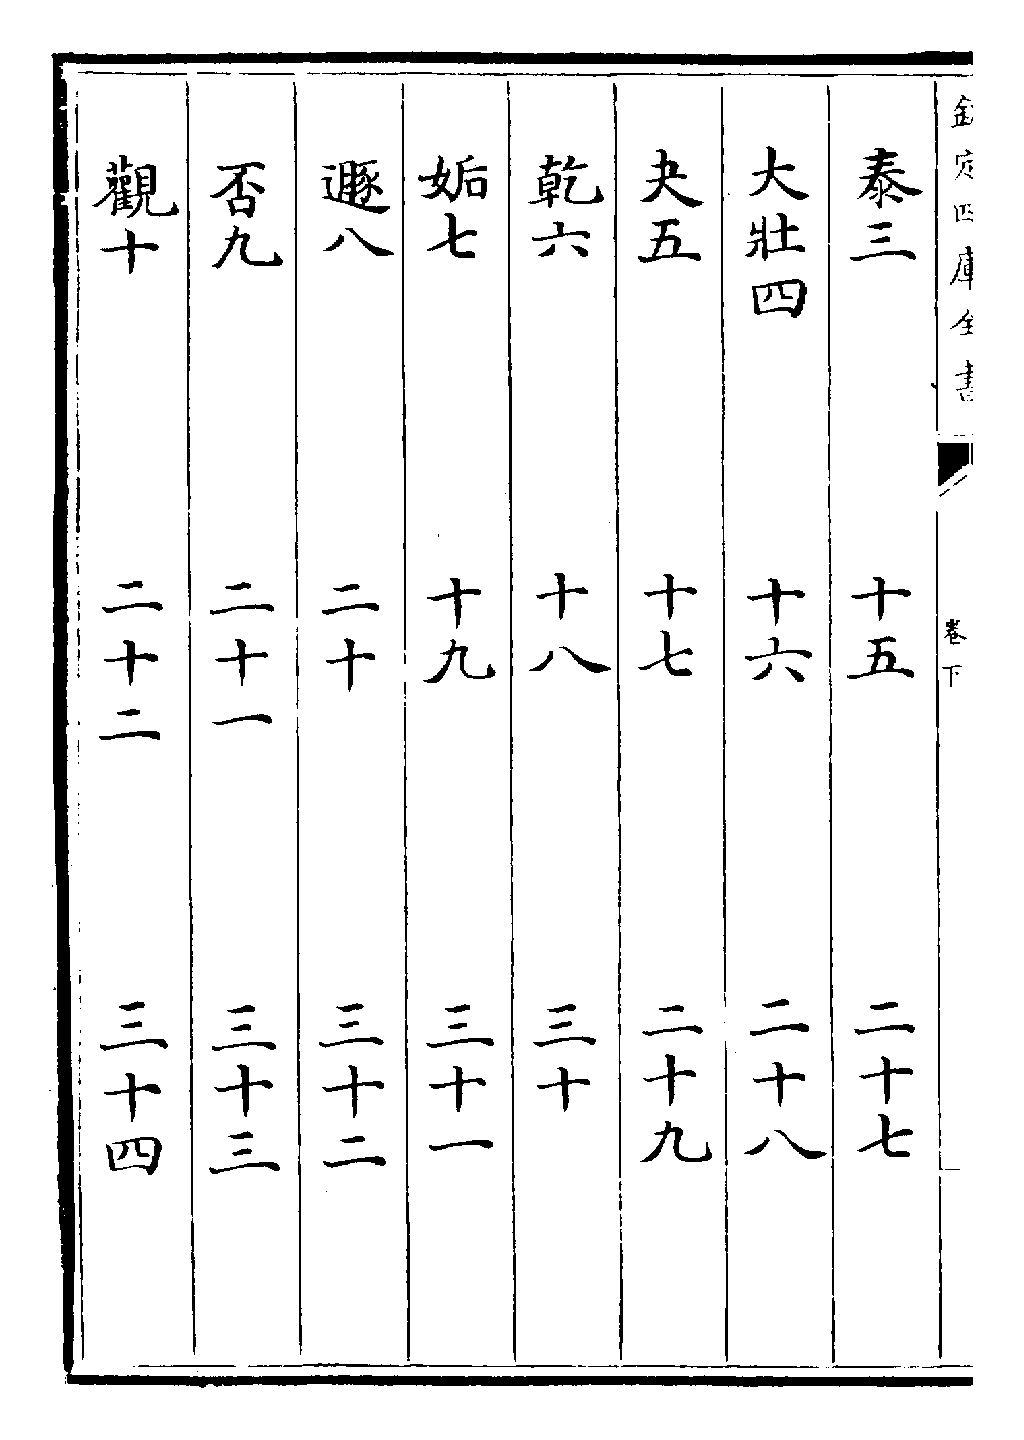 欽定四庫全書 卷下
泰三 十五 二十七
大壯四 十六 二十八
夬五 十七 二十九
乾六 十八 三十
姤七 十九 三十一
遯八 二十 三十二
否九 二十一 三十三
觀十 二十二 三十四